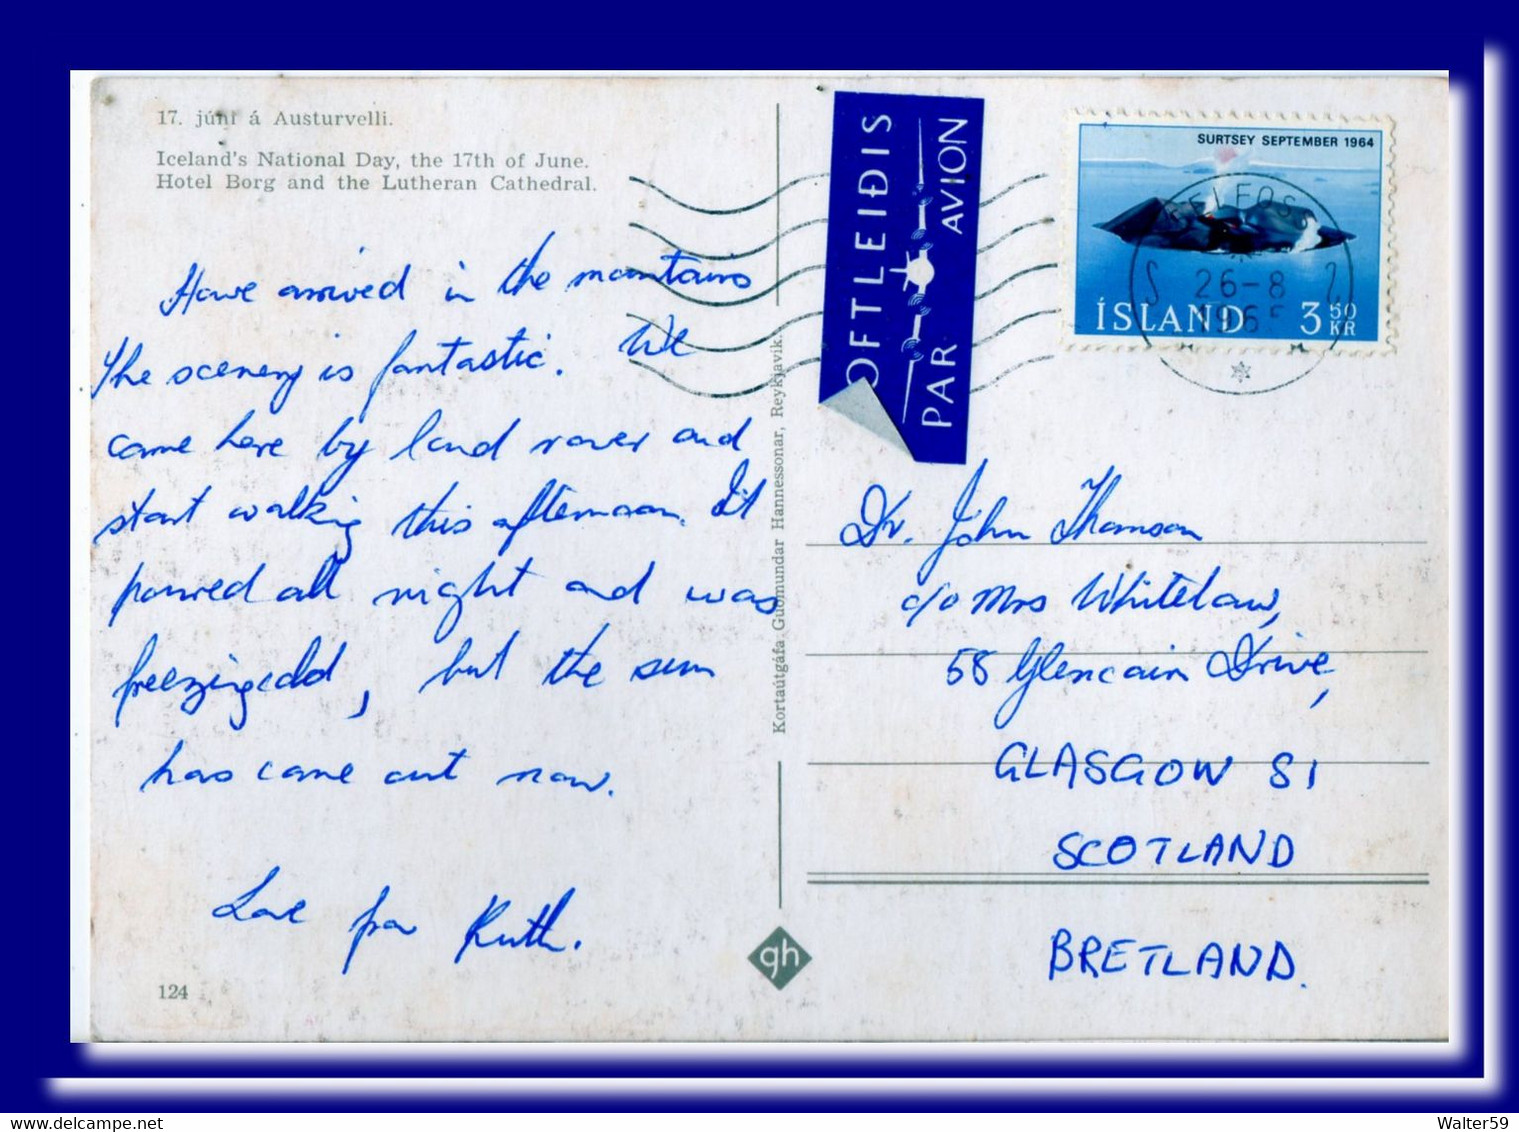 17. júní á Austurvelli.
Iceland's National Day, the 17th of June.
Hotel Borg and the Lutheran Cathedral.
Have arrived in the mountains
The scenery is fantastic. We
came here by land rover and
start walking this afternoon. It
poured all night and was
freezing cold, but the sun
has come out now.
Love from Ruth.
124
Kortaútgáfa Guðmundar Hannessonar, Reykjavík.
gh
LOFTLEIÐIS
PAR AVION
SURTSEY SEPTEMBER 1964
ÍSLAND 3 50 KR
SELFOSS
26-8
1965
Dr. John Thomson
c/o Mrs Whitelaw,
58 Glencairn Drive,
GLASGOW S1
SCOTLAND
BRETLAND.
Walter59